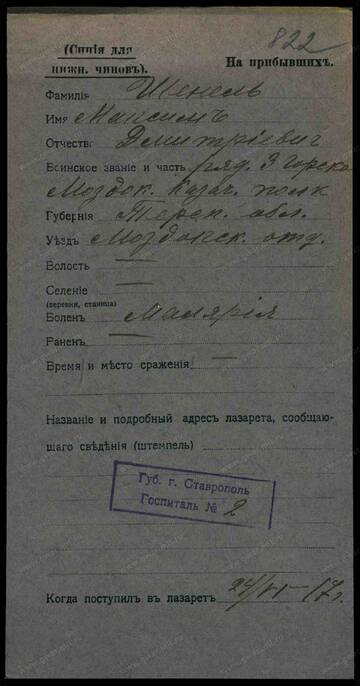 822
(Синiя для
нижн. чиновъ).
На прибывшихъ.
Фамилiя Шенель
Имя Максимъ
Отчество Дмитрiевич
Воинское званiе и часть ряд. 3 Горско
Моздок. Казач. полк
Губернiя Терск. обл.
Уѣздъ Моздокск. отд.
Волость —
Селенiе —
(деревня, станица)
Боленъ Малярiя
Раненъ —
Время и мѣсто сраженiя —
Названiе и подробный адресъ лазарета, сообщаю-
щаго свѣдѣнiя (штемпель)
Губ. г. Ставрополь
Госпиталь № 2
Когда поступилъ въ лазаретъ 24/VI-17г.